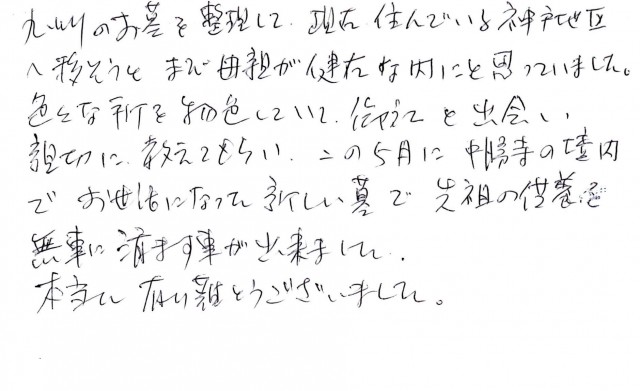 九州のお墓を整理して、現在住んでいる神戸地区
へ移そうと まだ母親が健在な内にと思っていました。
色々な所を物色していて、御社と出会い
親切に教えてもらい、この5月に中勝寺の境内
で お世話になって 新しい墓で 先祖の供養を
無事に済ます事が出来ました。
本当に 有り難とうございました。